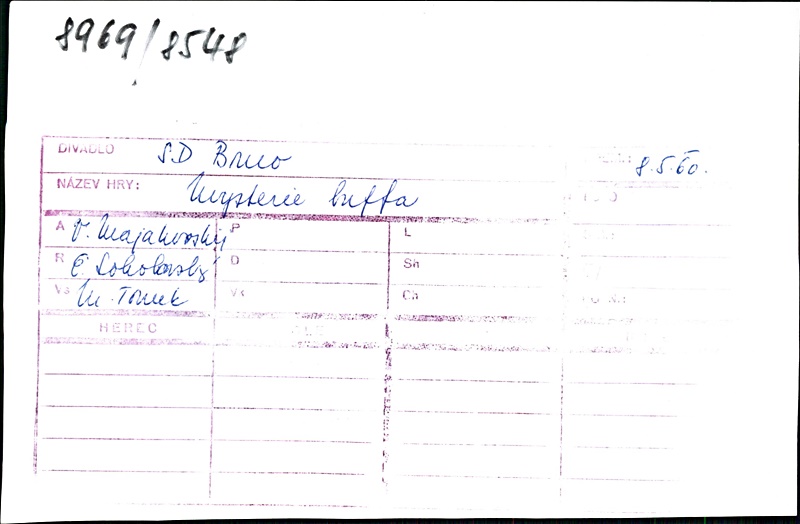 8969/8548
DIVADLO SD Brno 8.5.60.
NÁZEV HRY: Mysterie buffa
A V. Majakovský P L
R E. Sokolovský O Sh
Vs M. Tomek Vk Ch
HEREC